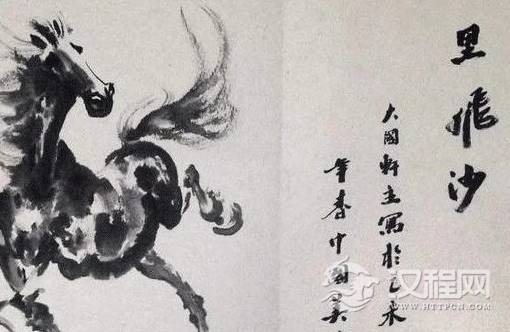 里飛沙
大國軒主寫於乙未
年春中國美
汉程网
HTTPCN.COM